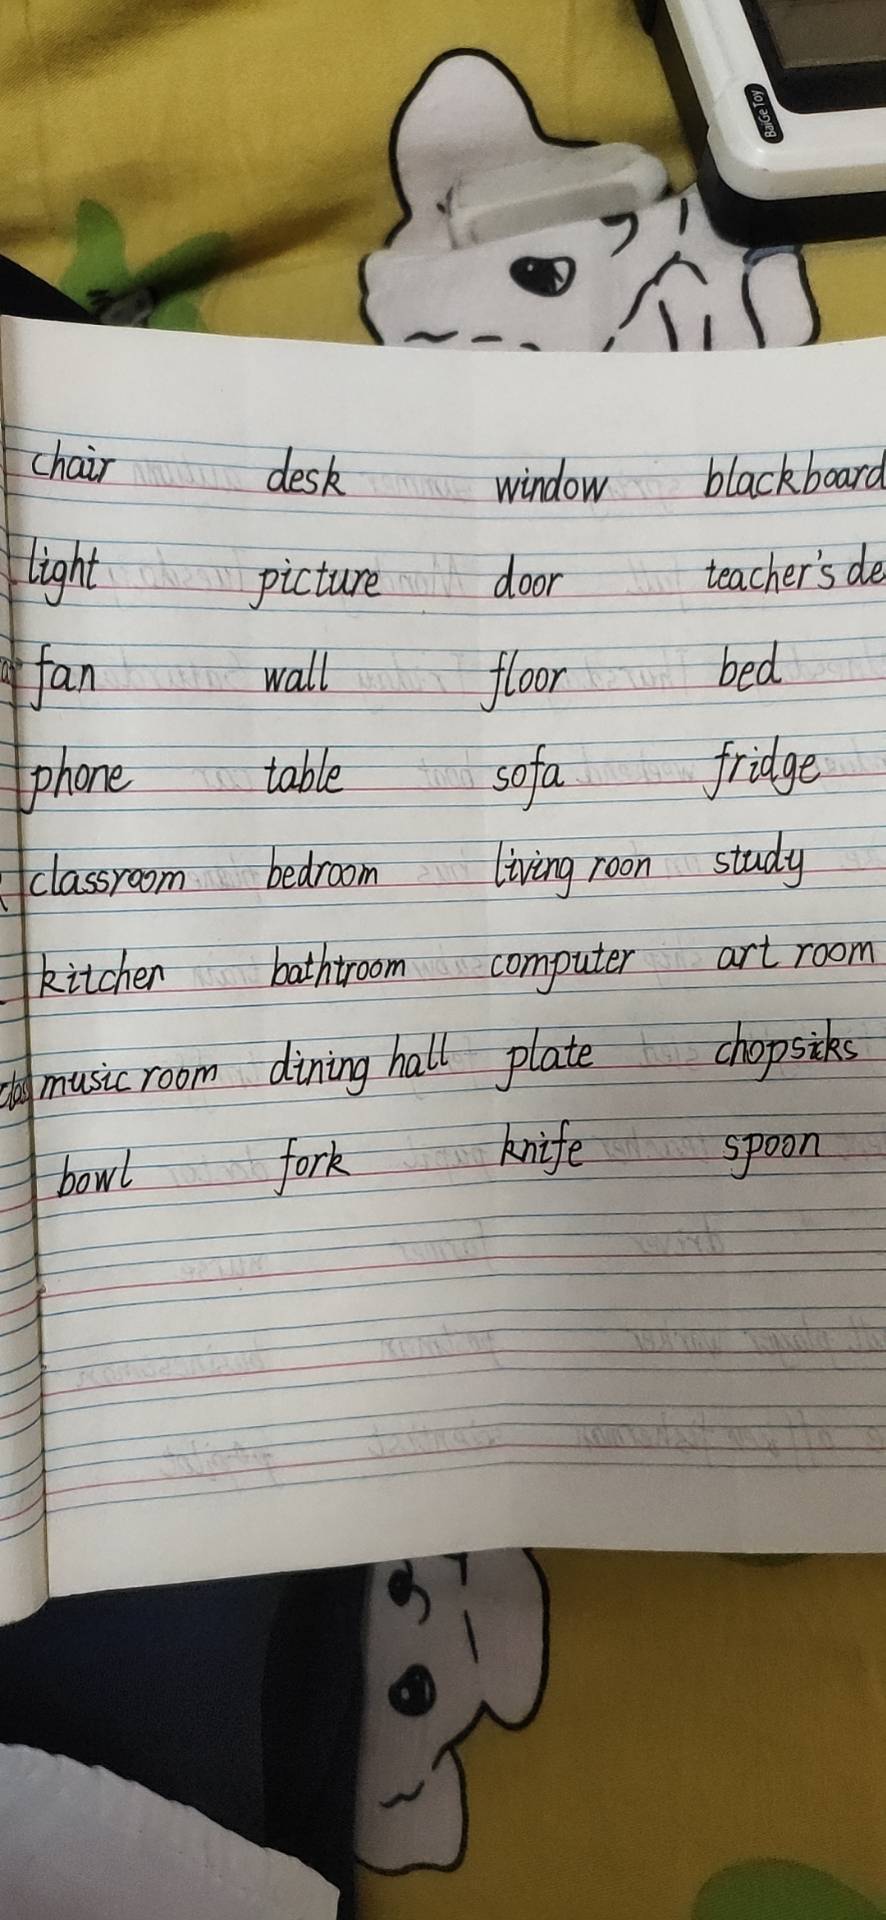 BaiGe Toy
chair desk window blackboard
light picture door teacher's de
fan wall floor bed
phone table sofa fridge
classroom bedroom living roon study
kitchen bathtroom computer art room
music room dining hall plate chopsiks
bowl fork knife spoon